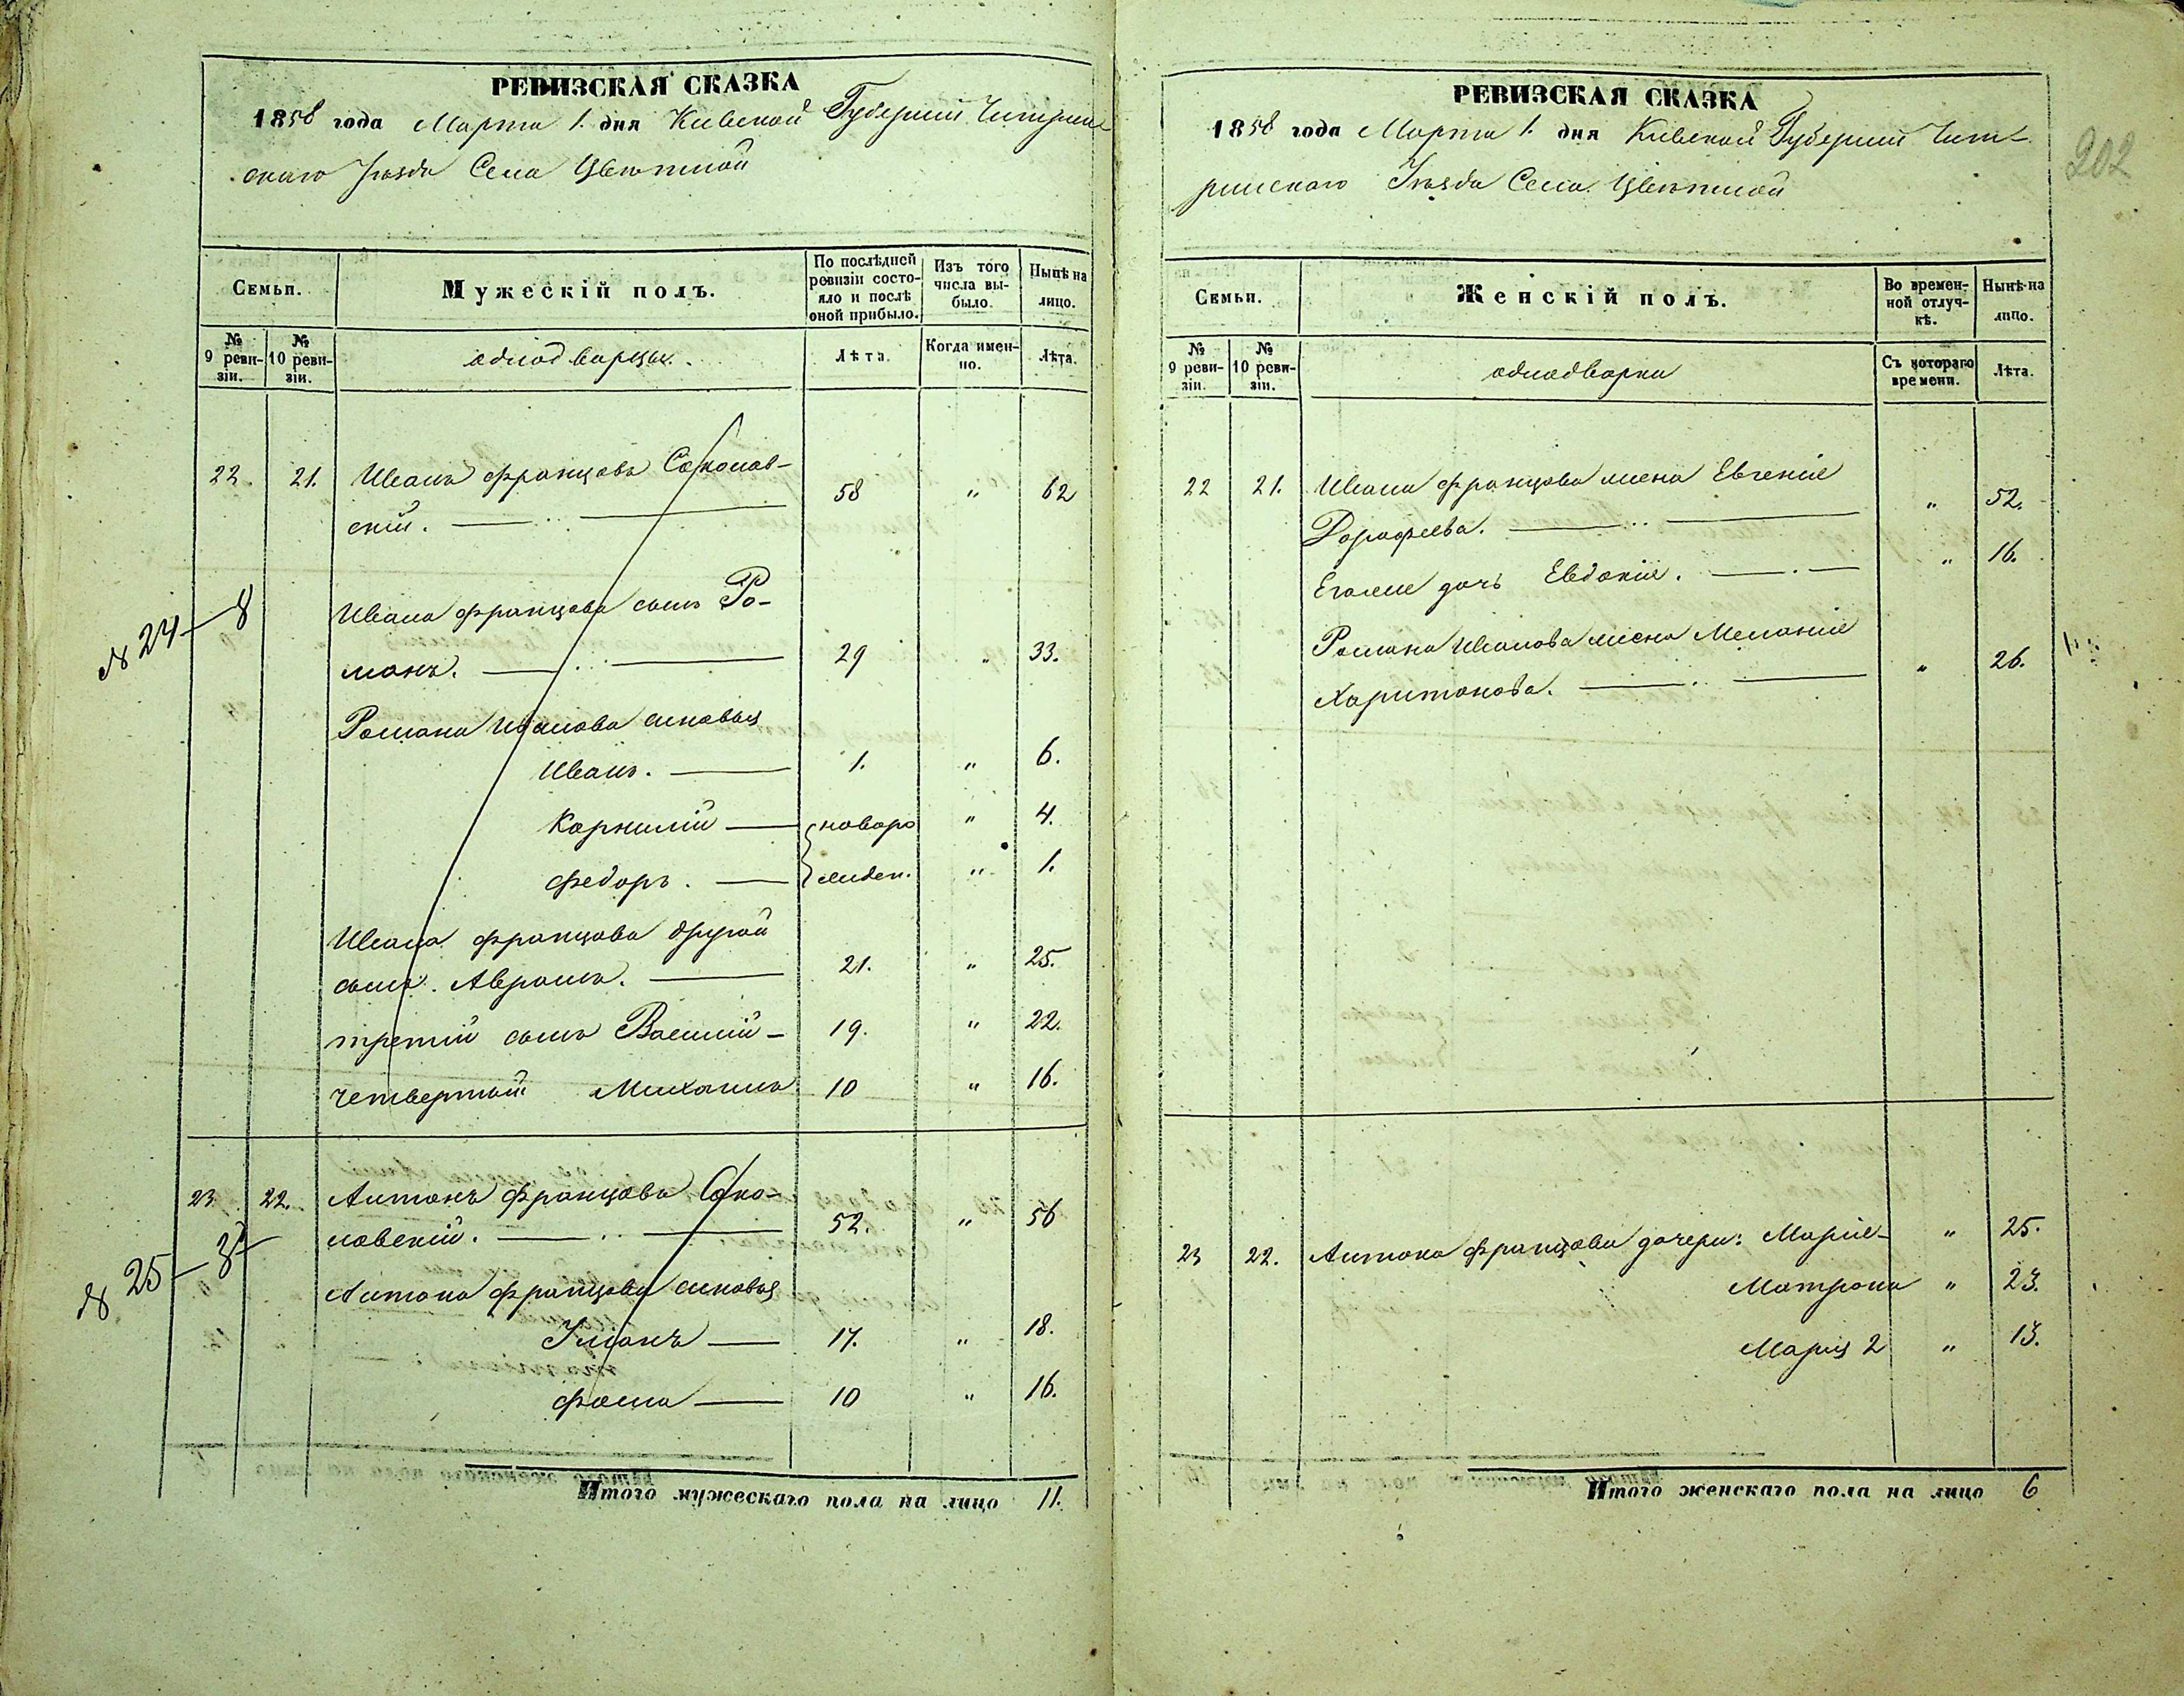 РЕВИЗСКАЯ СКАЗКА
1858 года Марта 1. дня Кіевской Губерніи Чигрин-
скаго Уѣзда Села Цвѣтной
Семьи.
Мужескій полъ.
По послѣдней ревизіи состо-
яло и послѣ
оной прибыло.
Изъ того
числа вы-
было.
Нынѣ на
лицо.
№
9 реви-
зіи.
№
10 реви-
зіи.
однодворцы.
Лѣта.
Когда имен-
но.
Лѣта.
22. 21. Иванъ Францовъ Соколов-
скій. 58 " 62
№ 24 — 8
Ивана Францова сынъ Ро-
манъ. 29 " 33.
Романа Иванова сыновья
Иванъ. 1. " 6.
Корнилій новоро " 4.
Федоръ. жден. " 1.
Ивана Францова другой
сынъ. Аврамъ. 21. " 25.
третій сынъ Василій 19. " 22.
четвертый Михаилъ 10 " 16.
23. 22. Антонъ Францовъ Соко-
ловскій. 52. " 56
№ 25 — 3
Антона Францова сыновья
17. " 18.
Фома 10 " 16.
Итого мужескаго пола на лицо 11.
РЕВИЗСКАЯ СКАЗКА
1858 года Марта 1. дня Кіевской Губерніи Чиг-
ринскаго Уѣзда Села Цвѣтной
202
Семьи.
Женскій полъ.
Во времен-
ной отлуч-
кѣ.
Нынѣ на
лицо.
№
9 реви-
зіи.
№
10 реви-
зіи.
однодворки
Съ котораго
времени.
Лѣта.
22 21. Ивана Францова жена Евгенія
Дорофеева. " 52.
Егоже дочь Евдокія. " 16.
Романа Иванова жена Меланія
Харитонова. " 26.
23 22. Антона Францова дочери: Марія " 25.
Матрона " 23.
Марія 2 " 13.
Итого женскаго пола на лицо 6